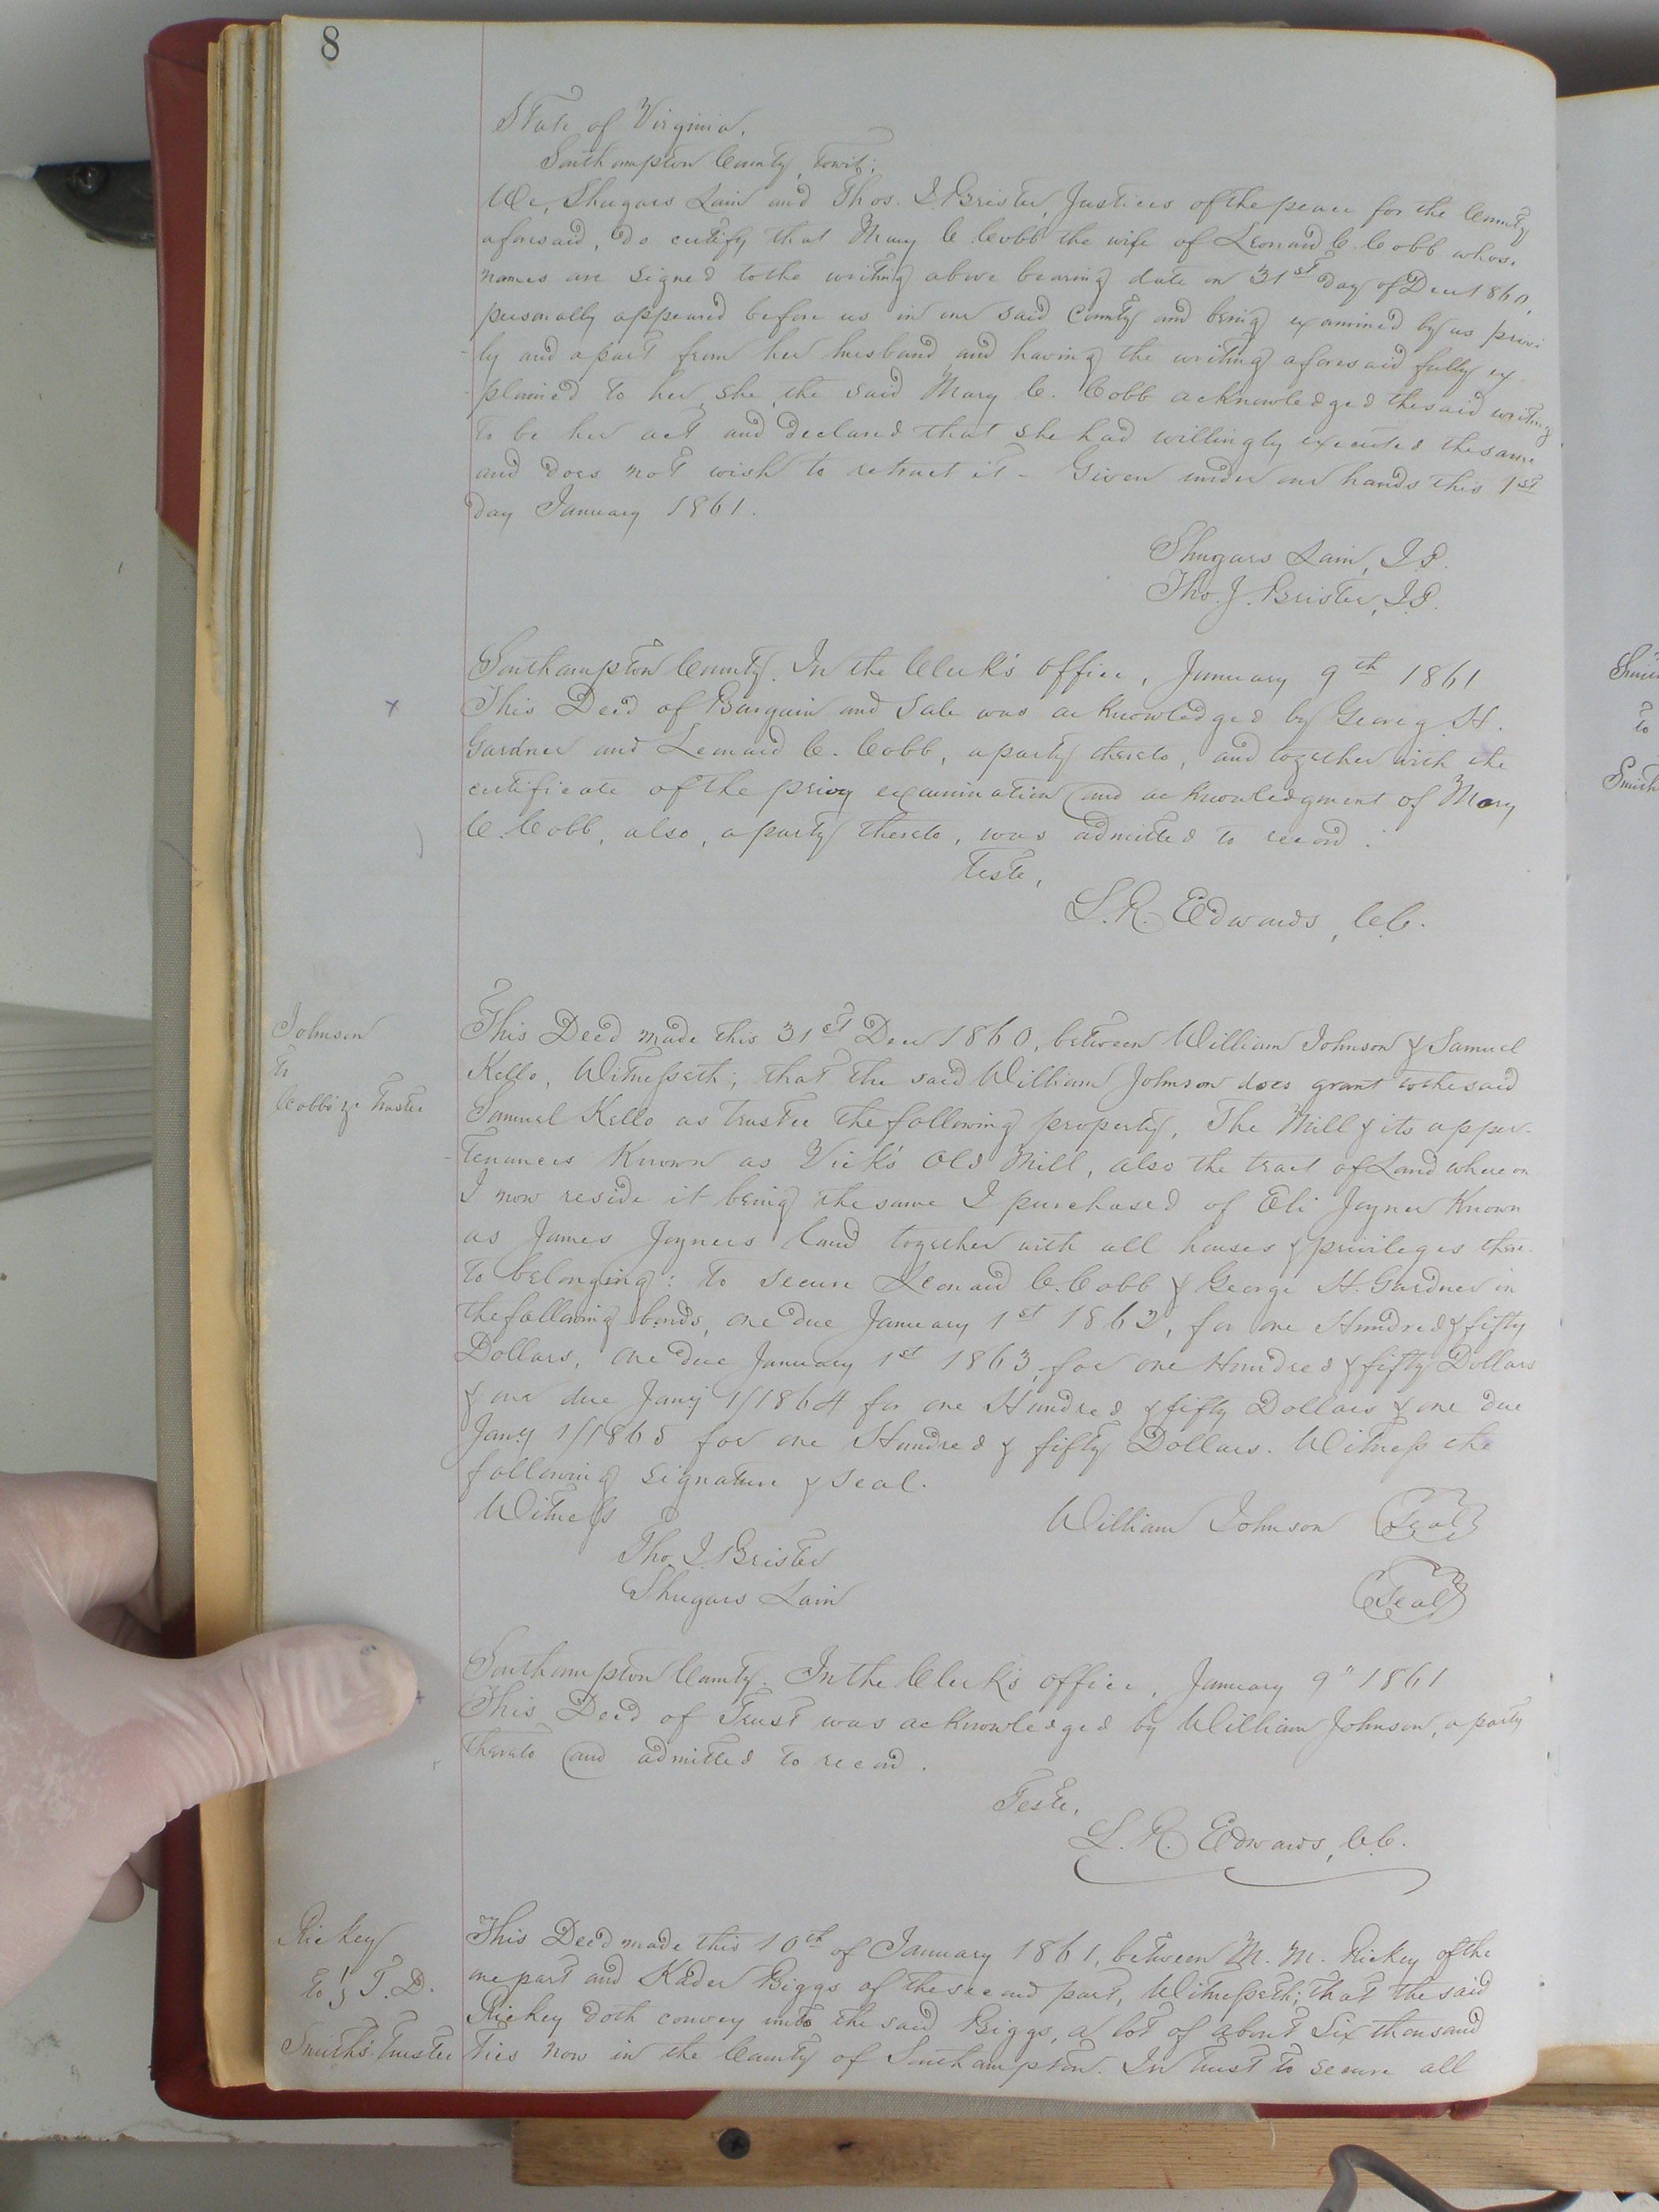 8
State of Virginia,
Southampton County, towit:
We, Shugars Lain and Thos. J. Brister, Justices of the peace for the County
aforesaid, do certify that Mary C Cobb the wife of Leonard C. Cobb whose
names are signed to the writing above bearing date on 31st day of Decr 1860,
personally appeared before us in our said County and being examined by us privi
ly and apart from her husband and having the writing aforesaid fully ex
plained to her, she the said Mary C. Cobb acknowledged the said writing
to be her act and declared that she had willingly executed the same
and does not wish to retract it - Given under our hands this 1st
day January 1861.
Shugars Lain, J.P.
Tho. J. Brister, J.P.
Southampton County. In the Clerk's office, January 9th 1861
x
This Deed of Bargain and Sale was acknowledged by Georg H.
Gardner and Leonard C. Cobb, a party thereto, and together with the
certificate of the privy examination and acknowledgment of Mary
C. Cobb, also, a party thereto, was admitted to record.
Teste,
L. R. Edwards, C.C.
Johnson
to
Cobb &c Trustee
This Deed made this 31st Decr 1860, between William Johnson & Samuel
Kello, Witnesseth; that the said William Johnson does grant to the said
Samuel Kello as trustee the following property, The Mill & its apper-
tenances Known as Vick's Old Mill, also the tract of Land whereon
I now reside it being the same I purchased of Eli Joyner Known
as James Joyners land together with all houses & privileges there-
to belonging: to secure Leonard C. Cobb & George H. Gardner in
the following bonds, one due January 1st 1862, for one Hundred & fifty
Dollars, one due January 1st 1863, for one Hundred & fifty Dollars
& one due Jany 1/1864 for one Hundred & fifty Dollars & one due
Jany 1/1865 for one Hundred & fifty Dollars. Witness the
following signature & seal.
Witness
William Johnson Seal
Tho. J. Brister
Shugars Lain
Seal
Southampton County. In the Clerk's office, January 9" 1861
This Deed of Trust was acknowledged by William Johnson, a party
thereto and admitted to record.
Teste,
L. R. Edwards, C.C.
Rickey
to } T. D.
Smith's Trustee
This Deed made this 10th of January 1861, between M. M. Rickey of the
one part and Kader Biggs of the second part, Witnesseth; that the said
Rickey doth convey unto the said Biggs, a lot of about Six thousand
Ties now in the County of Southampton. In trust to secure all
to